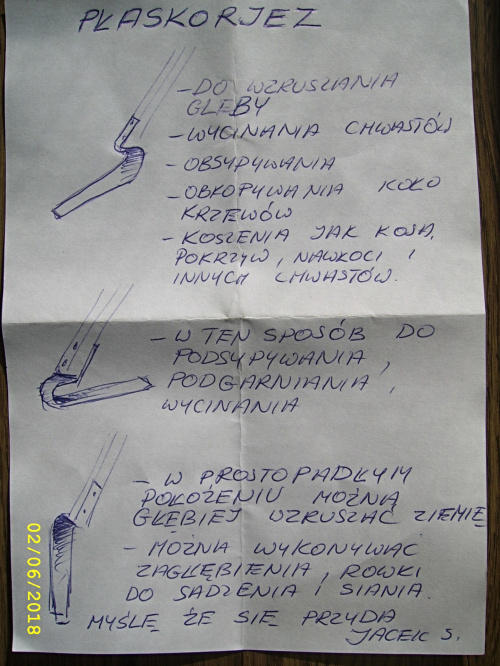 PŁASKORJEZ
- DO WZRUSZANIA
GLEBY
- WYCINANIA CHWASTÓW
- OBSYPYWANIA
- OBKOPYWANIA KOŁO
KRZEWÓW
- KOSZENIA JAK KOSĄ,
POKRZYW, NAWŁOCI I
INNYCH CHWASTÓW.
- W TEN SPOSÓB DO
PODSYPYWANIA,
PODGARNIANIA,
WYCINANIA
- W PROSTOPADŁYM
POŁOŻENIU MOŻNA
GŁĘBIEJ WZRUSZAĆ ZIEMIĘ
- MOŻNA WYKONYWAĆ
ZAGŁĘBIENIA, ROWKI
DO SADZENIA I SIANIA.
MYŚLĘ ŻE SIĘ PRZYDA
JACEK S.
02/06/2018